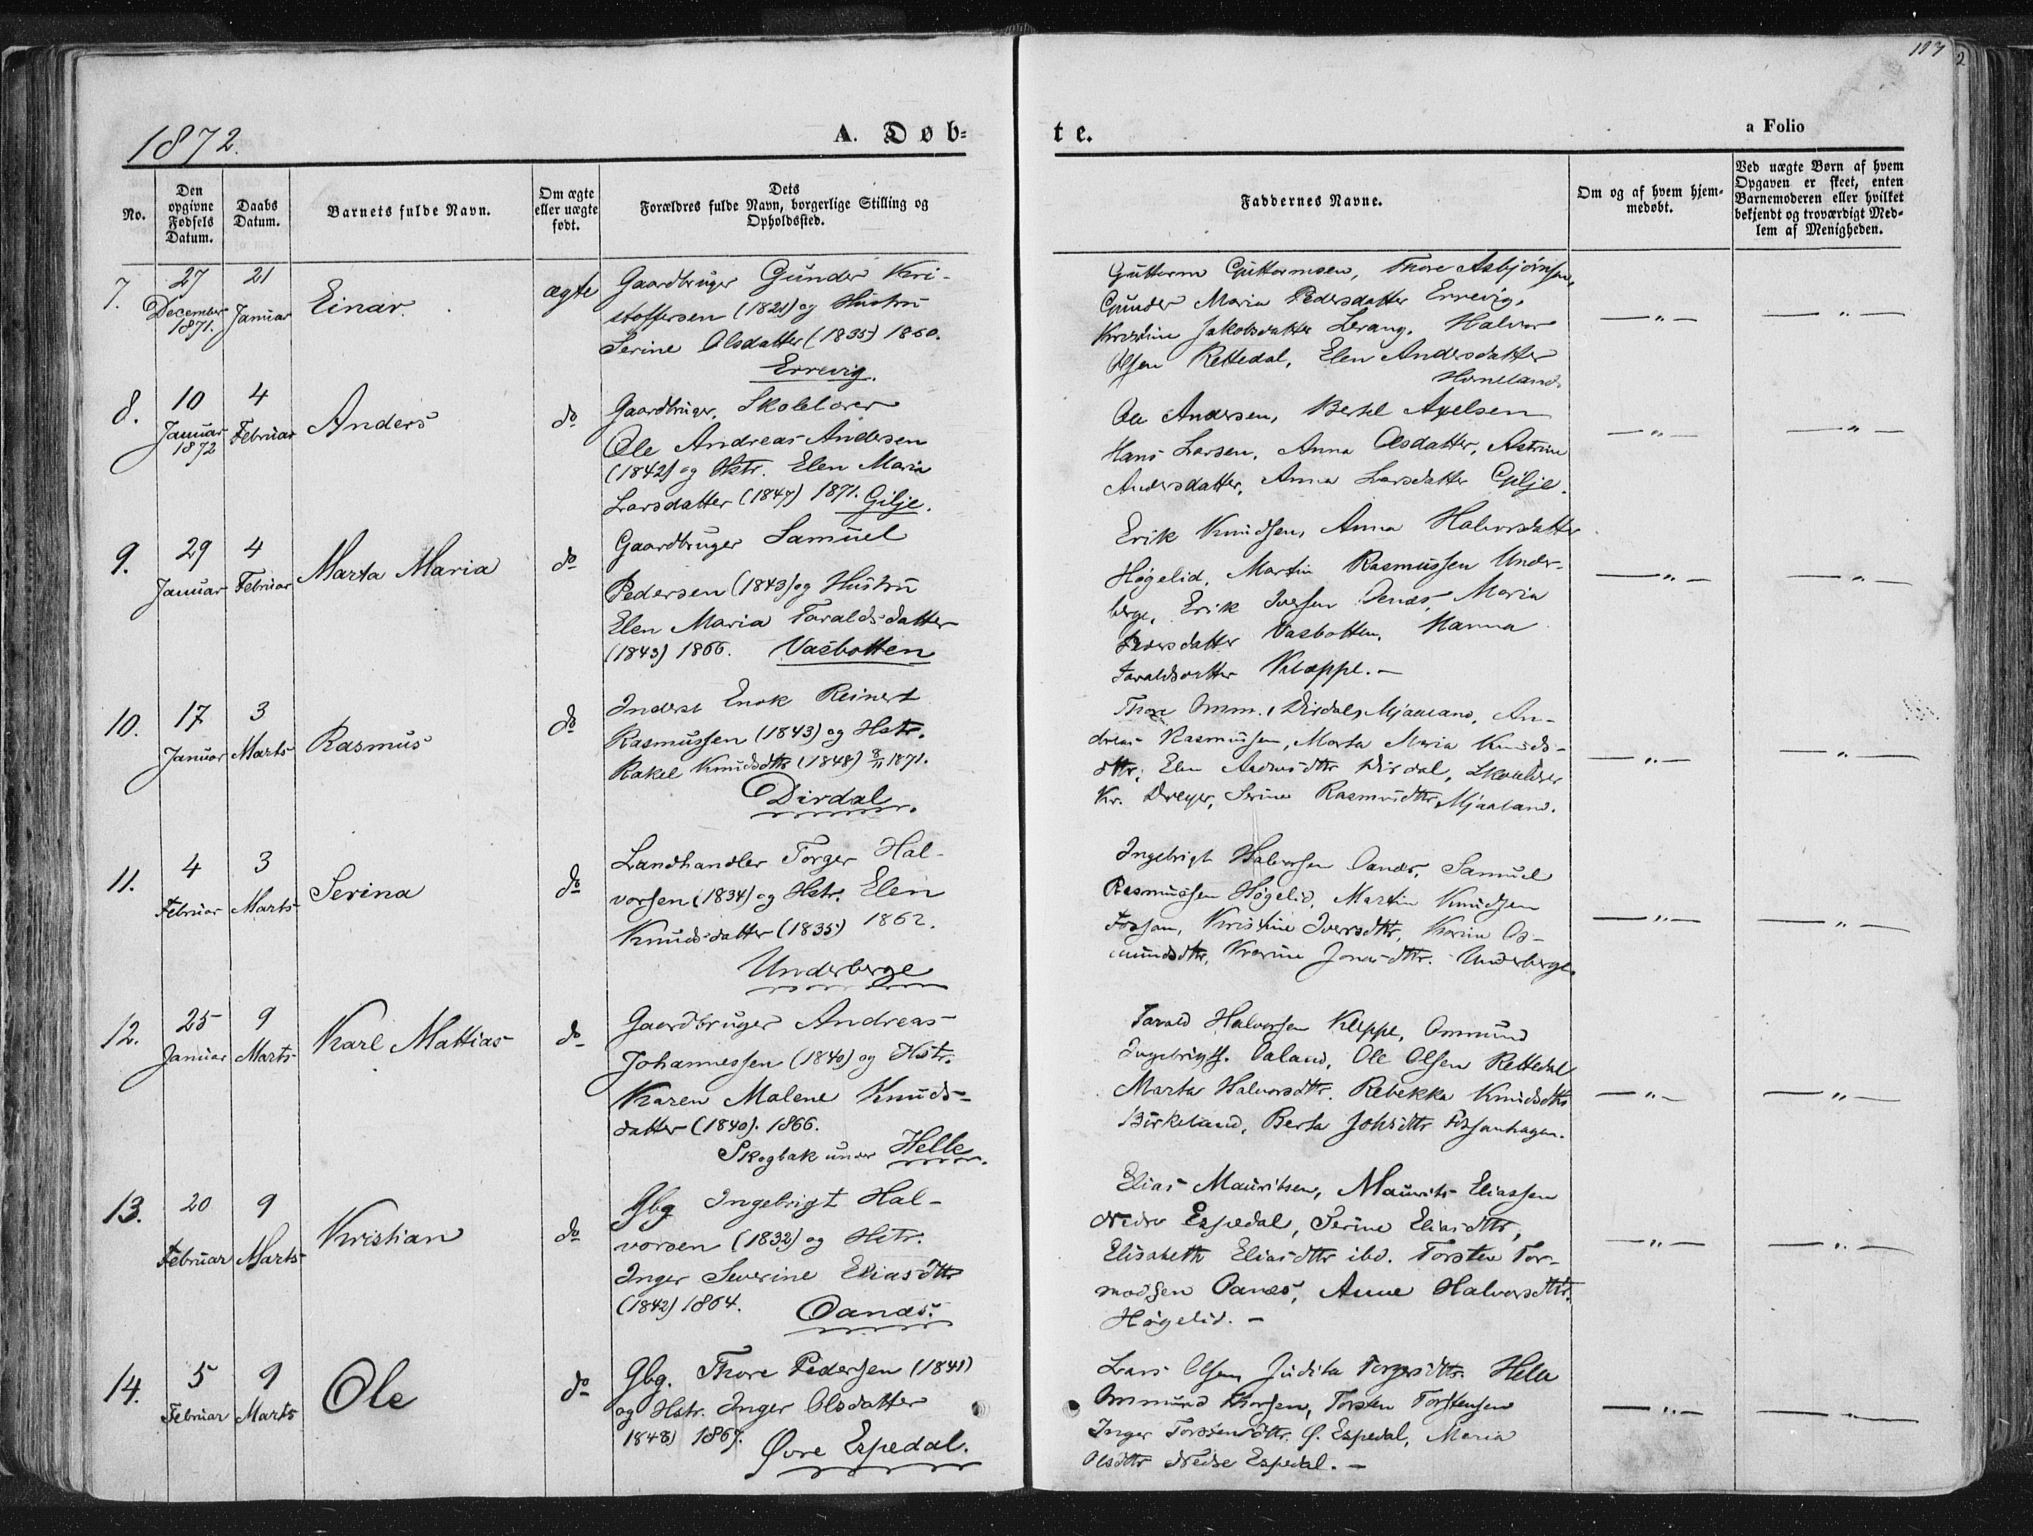 117
2
1872.
A. Døb-
te.
a Folio
No.
Den opgivne Fødsels Datum.
Daabs Datum.
Barnets fulde Navn.
Om ægte eller uægte født.
Dets Forældres fulde Navn, borgerlige Stilling og Opholdssted.
Faddernes Navne.
Om og af hvem hjemmedøbt.
Ved uægte Børn af hvem Opgaven er skeet, enten Barnemoderen eller hvilket bekjendt og troværdigt Medlem af Menigheden.
7.
27 December 1871.
21 Januar
Einar.
ægte
Gaardbruger Gunder Kri-
stoffersen (1821) og Hustru
Serine Olsdatter (1835) 1860.
Errevig.
Guttorm Guttormsen, Thore Asbjørnsen,
Gunder Maria Pedersdatter Errevig,
Kristine Jakobsdatter Lerang. Halvor
Olsen Rettedal, Elen Andersdatter
Horneland.
— " —
— " —
8.
10 Januar 1872
4 Februar
Anders
do
Gaardbruger, Skolelærer
Ole Andreas Andersen
(1842) og Hstr. Elen Maria
Larsdatter (1847) 1871. Gilje.
Ole Andersen, Bertel Axelsen
Hans Larsen, Anna Olsdatter, Astrine
Andersdatter, Anna Larsdatter Gilje.
— " —
— " —
9.
29 Januar
4 Februar
Marta Maria
do
Gaardbruger Samuel
Pedersen (1843) og Hustru
Elen Maria Taraldsdatter
(1843) 1866. Vasbotten
Erik Knudsen, Anna Halvorsdatter
Høgelid, Martin Rasmussen Under-
berge, Erik Iversen Oenæs, Maria
Pedersdatter Vasbotten, Hanna
Taraldsdatter Kleppe. —
— " —
— " —
10.
17 Januar
3 Marts
Rasmus
do
Inderst Enok Reinert
Rasmussen (1843) og Hstr.
Rakel Knudsdttr (1848) 8/11 1871.
Dirdal.
Thore Omm., Dirdal, Mjaaland, An-
dreas Rasmussen, Marta Maria Knuds-
dttr, Elen Andersdttr Dirdal,
Kr. Dreyer, Serine Rasmusdttr Mjaaland.
— " —
— " —
11.
4 Februar
3 Marts
Serina
do
Landhandler Torger Hal-
vorsen (1834) og Hstr. Elen
Knudsdatter (1835) 1862.
Underberge
Ingebrigt Halvorsen Oanæs, Samuel
Rasmussen Høgelid, Martin Knudsen
Fossan, Kristine Iversdttr, Karine Os-
mundsdttr, Karine Jonasdttr. Underberge.
— " —
— " —
12.
25 Januar
9 Marts
Karl Mattias
do
Gaardbruger Andreas
Johannessen (1840) og Hstr.
Karen Malene Knuds-
datter (1840). 1866.
Skogbak under Helle.
Tarald Halvorsen Kleppe, Ommund
Ingebrigts. Oaland, Ole Olsen Rettedal
Marta Halvorsdttr. Rebekka Knudsdttr
Birkeland, Berta Johsdttr Fossanhagen.
— " —
— " —
13.
20 Februar
9 Marts
Kristian
do
Gbg Ingebrigt Hal-
vorsen (1832) og Hstr.
Inger Severine Eliasdttr
(1842) 1864. Oanæs.
Elias Mauritsen, Maurits Eliassen
Nedre Espedal, Serine Eliasdttr,
Elisabeth Eliasdttr ibd. Torsten Tor-
modsen Oanæs, Anne Halvorsdttr.
Høgelid. —
— " —
— " —
14.
5 Februar
9 Marts
Ole
do
Gbg. Thore Pedersen (1841)
og Hstr. Inger Olsdatter
1848) 1867. Øvre Espedal.
Lars Olsen, Judita Torgersdttr. Helle
Ommund Thorsen, Torsten Torstensen
Inger Torstensdttr. Ø. Espedal, Maria
Olsdttr Nedre Espedal. —
— " —
— " —